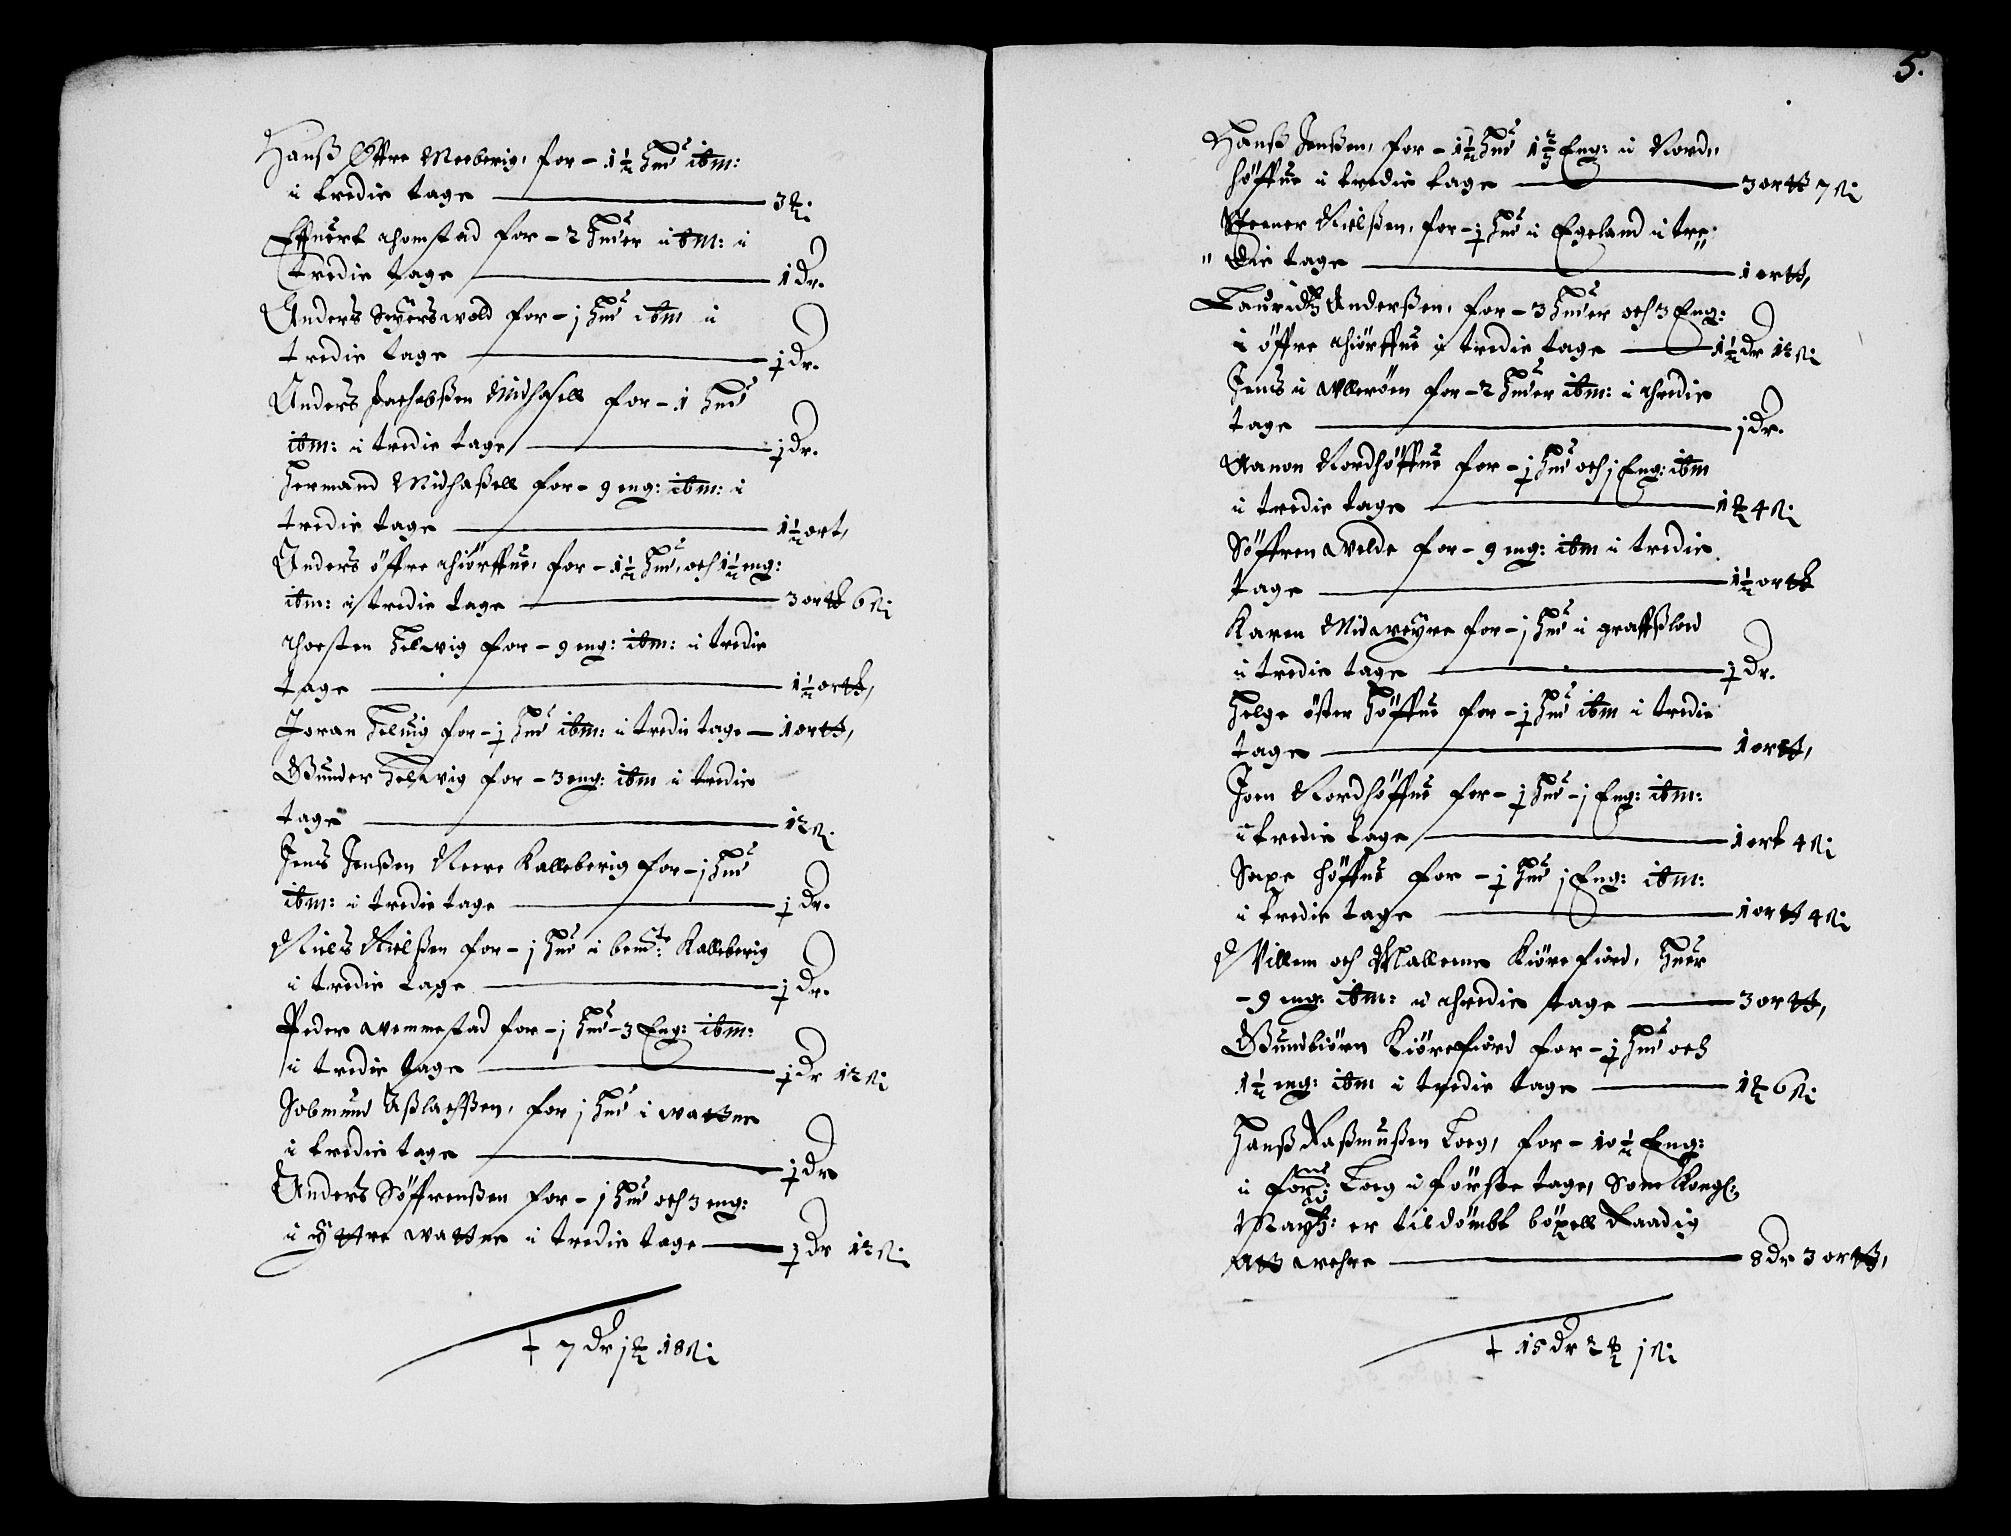 Hanß Øffre Meeberig, for - 1½ Hud itm:
i tredie tage 3
Effuert Thomstad for - 2 Huder itm: i
tredie tage 1 Dr.
Anders Sigersvold for - j Hud itm i
tredie tage ½ Dr.
Anders Jachobßen Midhaßell for - 1 Hud
itm: i tredie tage ½ Dr.
Hermand Midhaßell for - 9 eng: itm: i
tredie tage 1½ ort,
Anders öffre Thiörffue, for - 1½ Hud, och 1½ eng:
itm: i tredie tage 3 ortt 6 ß
Thorsten Helvig for - 9 eng: itm: i tredie
tage 1½ ortt,
Joran Heluig for - ½ Hud itm: i tredie tage 1 ortt,
Gunder Helvig for - 3 eng: itm i tredie
tage 12 ß
Jens Jenßen Neere Kalleberig for - j Hud
itm: i tredie tage ½ Dr.
Niels Nielßen for - j Hud i bemte: Kalleberig
i tredie tage ½ Dr.
Peder Vemmestad for - j Hud - 3 Eng: itm:
i tredie tage ½ Dr 12 ß
Jobmund Aßlachßen, for j Hud i Vattne
i tredie tage ½ Dr
Anders Söffrenßen for - j Hud och 3 eng:
i Yttre Vattne i tredie tage ½ Dr 12 ß
7 Dr j 18 ß
5.
Hanß Jenßen, for - 1½ Hud 1⅔ Eng: i Nord,,
höffue i tredie tage 3 ortt 7 ß
Steener Nielßen, for - ½ Hud i Egeland i tre,,
,, die tage 1 ortt,
Lauridtz Anderßen, for - 3 Huder och 3 Eng:
i öffre Thiörffue i tredie tage 1½ Dr 12 ß
Jens i Ulleröen for - 2 Huder itm: i thredie
tage j Dr.
Aanon Nordhöffue for - ½ Hud och j Eng: itm
i tredie tage 1 4 ß
Söffren Velde for - 9 eng: itm i tredie
tage 1½ ortt
Karen Midveyre for - j Hud i graffßlod
i tredie tage ½ Dr.
Helge öster Höffue for - ½ Hud itm i tredie
tage 1 ortt,
Joen Nordhöffue for - ½ Hud - j Eng: itm:
i tredie tage 1 ort 4 ß
Saxe Höffue for - ½ Hud j Eng: itm:
i tredie tage 1 ortt 4 ß
Villem och Malleme Kiörefiord, Huer
- 9 eng: itm: i thredie tage 3 ortt,
Gundbiörn Kiörefiord for - ½ Hud och
1½ eng: itm i tredie tage 1 6 ß
Hanß Raßmußen Loeg, for - 10½ Eng:
i for: Loeg i förste tage, Som Kongl:
Maytz: er tildömbt böxell Raadig
att vehre 8 Dr 3 ortt,
15 Dr 2 j ß